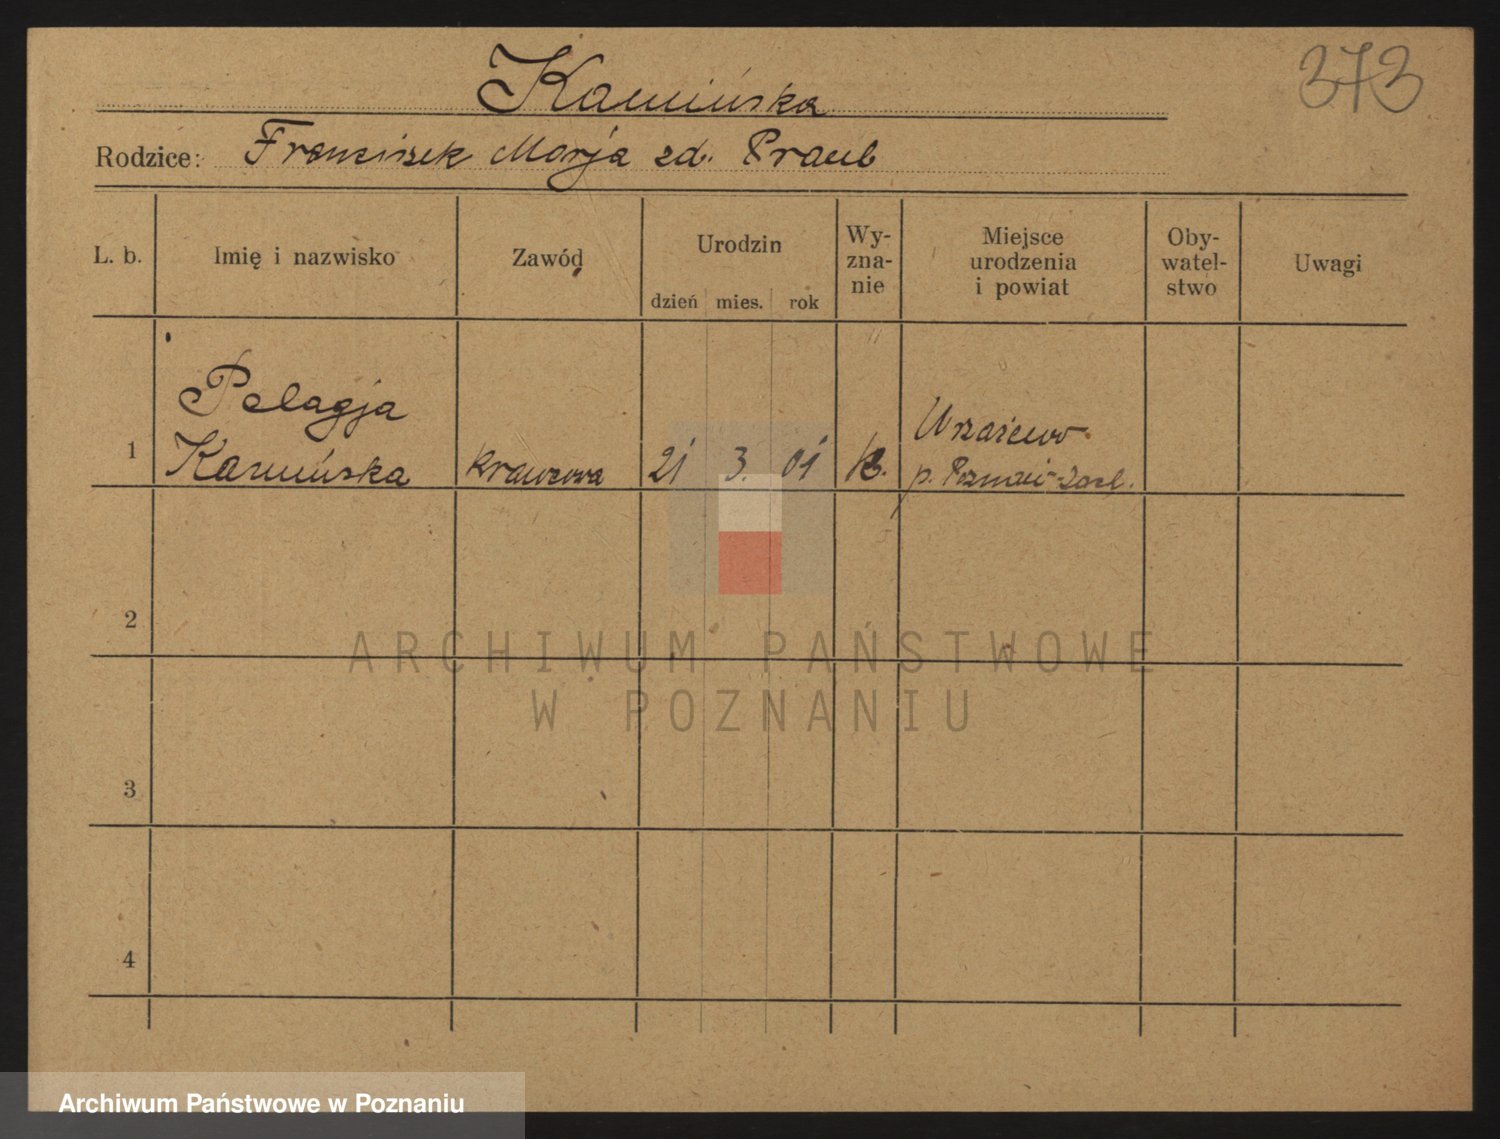 373
Kamińska
Rodzice: Franciszek Marja zd. Praub
L. b. Imię i nazwisko Zawód Urodzin Wy-zna-nie Miejsce urodzenia i powiat Oby-watel-stwo Uwagi
dzień mies. rok
Pelagja
1 Kamińska krawcowa 21 3. 01 K.
p. Poznań-Zach.
2
3
4
ARCHIWUM PAŃSTWOWE
W POZNANIU
Archiwum Państwowe w Poznaniu